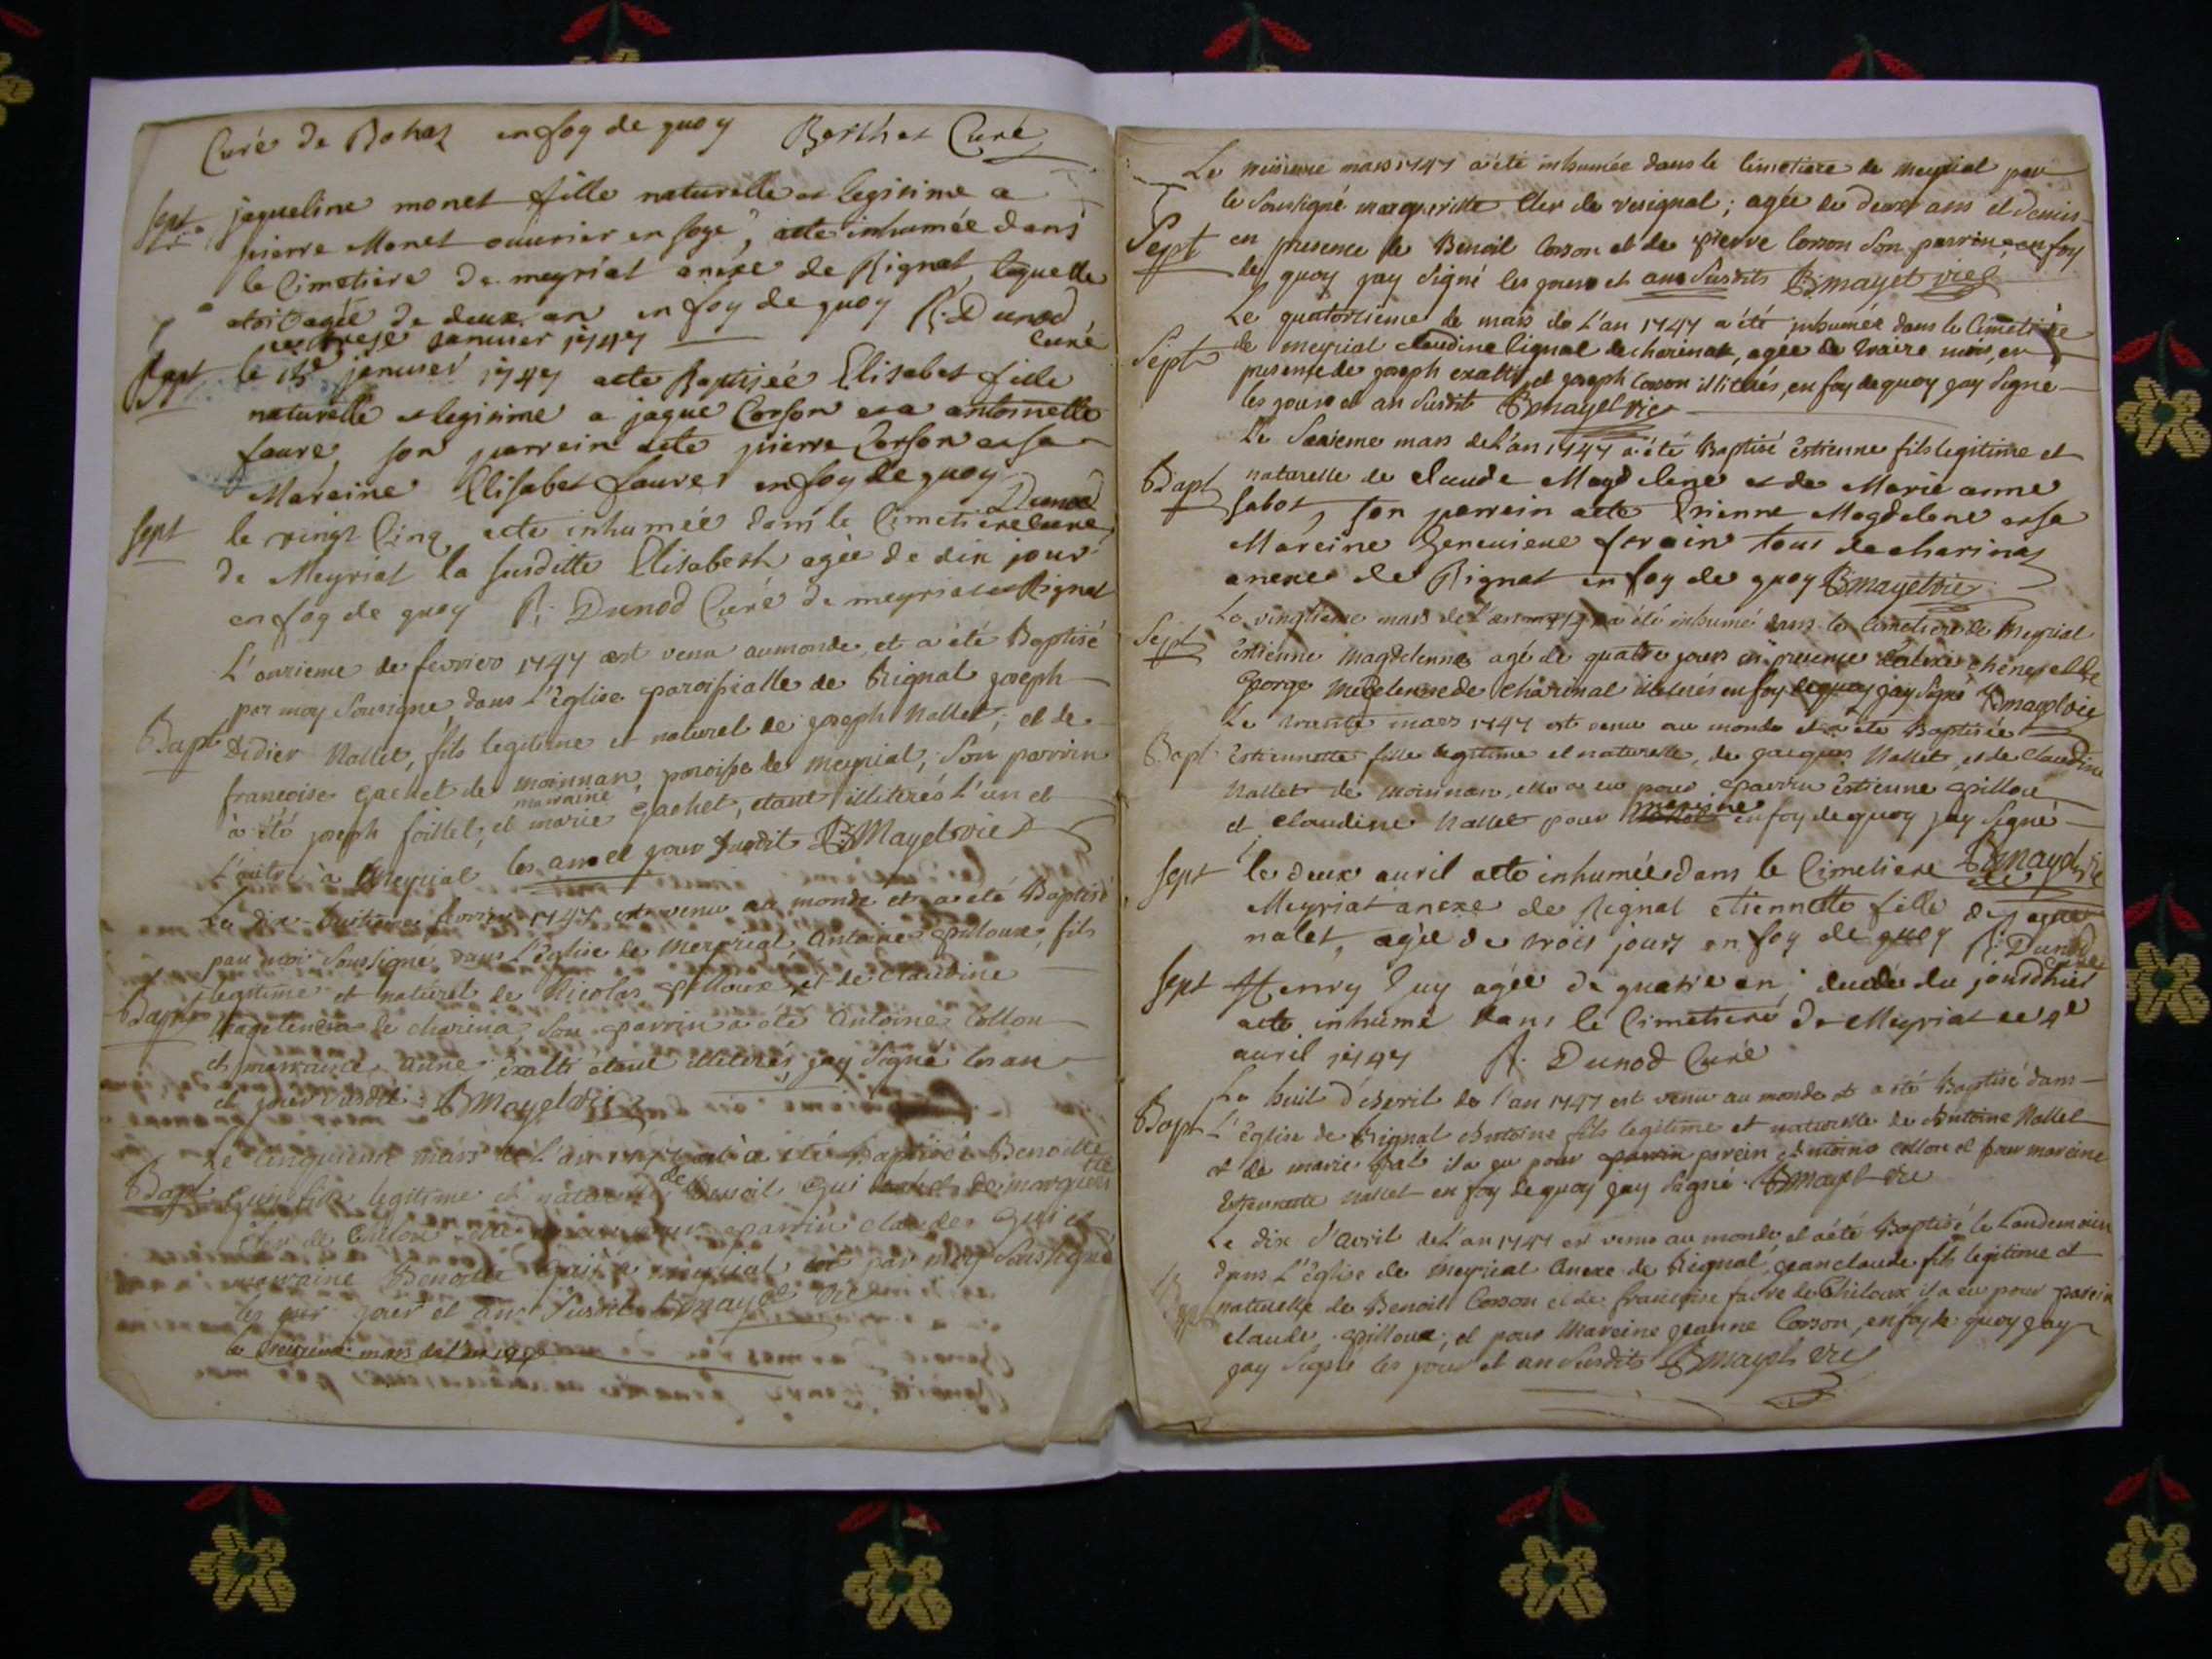 Curé de Bohas en foy de quoy Berthet Curé
sept jaqueline monet fille naturelle et legitime a
pierre Monet ouurier en soye, a ete inhumée dans
le Cimetiere de meyriat anexe de Rignat, laquelle
etoit agée de deux an en foy de quoy R: Dunod
treze januier 1747 Curé
Bapt le 15e januier 1747 a ete Baptisée Elisabet fille
naturelle et legitime a jaque Corson et a antoinette
faure, son parrein a ete pierre Corson et sa
Mareine Elisabet faure en foy de quoy
Dunod
sept le vingt Cinq a ete inhumée dans le Cimetiere Curé
de Meyriat la susditte Elisabeth agée de dix jour
en foy de quoy R: Dunod Curé de meyriat et Rignat
L'onzieme de fevrier 1747 est venu au monde, et a été Baptisé
par moy Soussigné, dans L'Eglise paroissialle de Rignat joseph
Bapt Didier Nallet, fils legitime et naturel de joseph Nallet, et de
francoise gachet de moinnan, paroisse de meyriat, Son parrin
marraine
à été joseph foillet, et marie gachet, etant illiterés L'un et
L'autre à Meyriat les an et jour Susdit B: Mayet vic
Le dix-huitieme fevrier 1747 est venu au monde et a été Baptisé
par moi Soussigné dans L'église de Meyriat Antoine pilloux, fils
legitime et naturel de Nicolas pilloux, et de Claudine
Bapt Magdelena de charina, Son parrin a été Antoine Collon
et marraine Anne exalti étant illiterés, jay Signé les an
et jour susdit B Mayet vic
Le cinquieme mars de L'an 1747 a été Baptisée Benoitte
Bapt Gui fille legitime et naturelle de Benoit Gui et de margueritte
Cler de Chiloux, elle a eu pour parrin claude Gui et
marraine Benoitte Gui a meyriat par moy Soussigné
les jour et an Susdit B mayet vic
le treizieme mars de l'an 1747
Le treizieme mars 1747 a été inhumée dans le Cimetiere de Meyriat par
le Soussigné marguerite Cler de resignat; agée de deux ans et demis
Sept en presence de Benoit Corson et de pierre Corson Son parrin, en foy
de quoy jay Signé les jour et an Susdits B: mayet vic
Le quatorzieme de mars de L'an 1747 a été inhumée dans le Cimetiére
Sept de meyriat claudine Tignat de charinat, agée de traize mois, en
presence de joseph exalti et joseph Corson illiterés, en foy de quoy jay Signé
les jour et an Susdit B mayet vic
Le Saizieme mars de L'an 1747 a été Baptisé Estienne fils legitime et
Bapt naturelle de claude Magdelene et de Marie anne
sabot, son parrein a ete Etienne Magdelene et sa
Mareine Genevieve forain tous de charinas
anexe de Rignat en foy de quoy B mayet vic
Le vingtieme mars de L'an 1747 a été inhumé dans le Cimetiere de Meyriat
Sept Estienne Magdelenne agé de quatre jours en presence chene et de
George Magdelenne de Charinat illiterés en foy de quoy jay Signé B mayet vic
Le trante mars 1747 est venue au monde et a été Baptisée
Bapt Estiennette fille legitime et naturelle, de jacques Nallet, et de Claudine
Nallet de moinnan, elle a eu pour parrin Estienne pilloux
mareine
et Claudine Nallet pour en foy de quoy jay Signé
B mayet vic
sept le deux auril a ete inhumée dans le Cimetiere de
Meyriat anexe de Rignat etiennette fille de jaque
nalet, agée de trois jours en foy de quoy R: Dunod
sept Henry Guy agée de quatre an decedé du jourdhui
a ete inhumé dans le Cimetieré de Meyriat ce 4e
auril 1747 R: Dunod Curé
Le huit d'Avril de l'an 1747 est venu au monde et a été Baptisé dans
Bapt L'église de Rignat Antoine fils legitime et naturelle de Antoine Nallet
et de marie il a eu pour parein Antoine collon et pour mareine
Estiennette Nallet en foy de quoy jay Signé B mayet vic
Le dix d'avril de L'an 1747 est venu au monde et a été Baptisé le Landemain
dans L'église de Meyriat Anexe de Rignat, jean claude fils legitime et
Bapt naturelle de Benoit Corson et de francoise faivre de Chiloux il a eu pour parein
claude pilloux; et pour Mareine jeanne Corson, en foy de quoy jay
jay Signé les jour et an Susdits B mayet vic